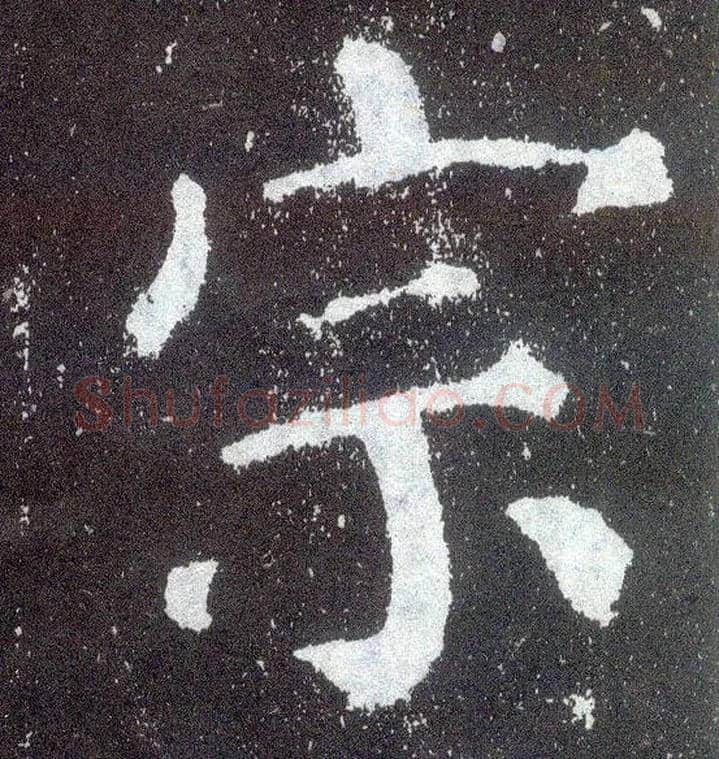 宗
Shufaziliao.COM